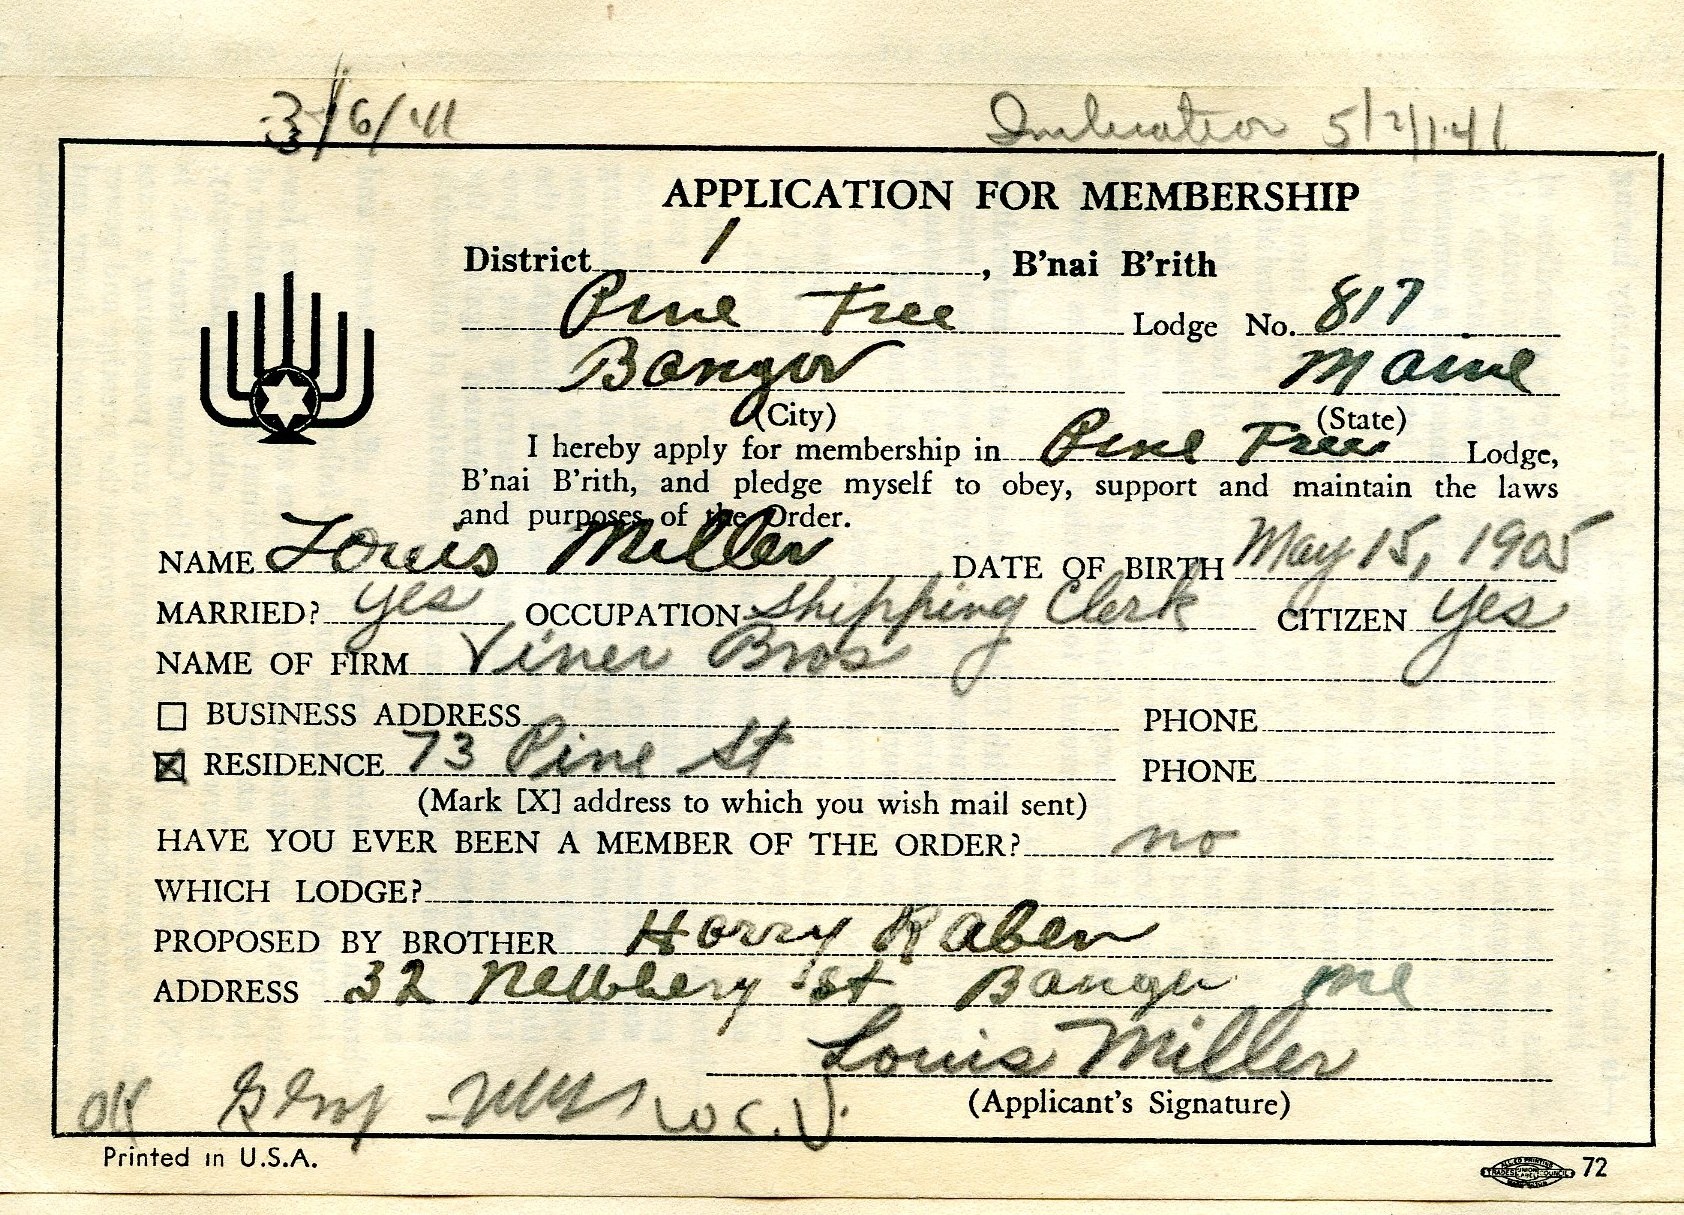 3/6/41 Initiation 5/21/41
APPLICATION FOR MEMBERSHIP
District 1, B'nai B'rith
Pine Tree Lodge No. 817
Bangor Maine
(City) (State)
I hereby apply for membership in Pine Tree Lodge,
B'nai B'rith, and pledge myself to obey, support and maintain the laws
and purposes of the Order.
NAME Louis Miller DATE OF BIRTH May 15, 1905
MARRIED? yes OCCUPATION Shipping Clerk CITIZEN yes
NAME OF FIRM Viner Bros
BUSINESS ADDRESS PHONE
RESIDENCE 73 Pine St PHONE
(Mark [X] address to which you wish mail sent)
HAVE YOU EVER BEEN A MEMBER OF THE ORDER? no
WHICH LODGE?
PROPOSED BY BROTHER Harry Raben
ADDRESS 32 Newbery St Bangor Me
Louis Miller
(Applicant's Signature)
OK
Printed in U.S.A.
72